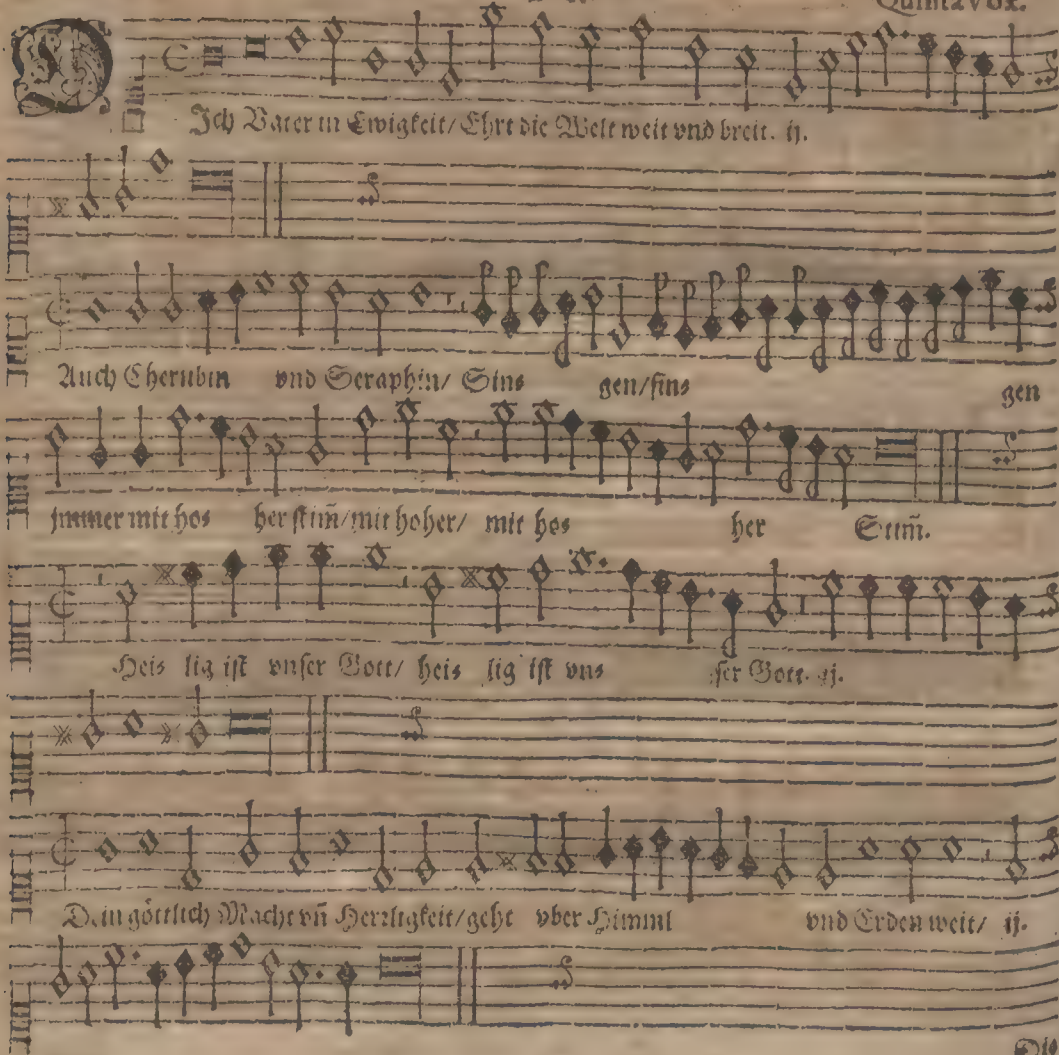 Quinta vox.
DIch Vater in Ewigkeit/ Ehrt die Welt weit vnd breit. ij.
Auch Cherubin vnd Seraphin/ Sin⸗ gen/sin⸗ gen
jmmer mit ho⸗ her stim̃/mit hoher/ mit ho⸗ her Stim̃.
Hei⸗ lig ist vnser Gott/ hei⸗ lig ist vn⸗ ser Gott. ij.
Dein göttlich Macht vñ Herrligkeit/geht vber Himml vnd Erden weit/ ij.
Die